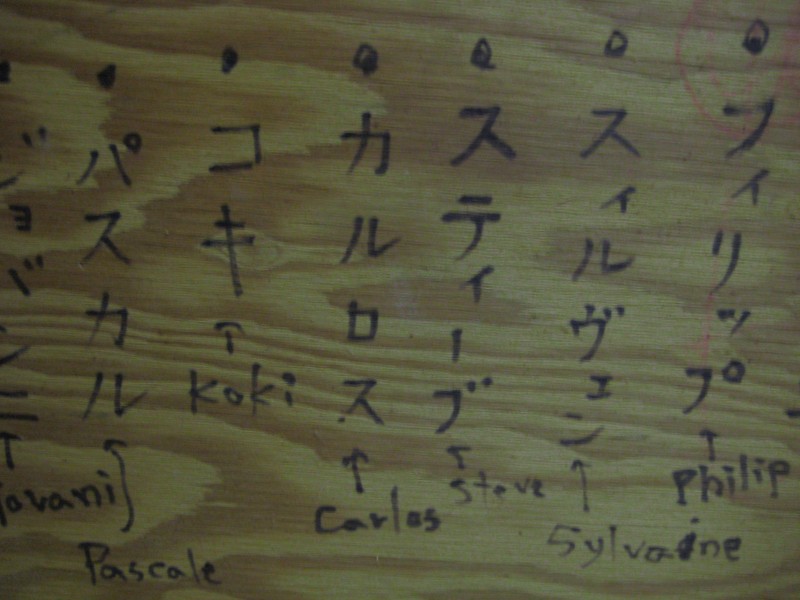 フィリップ
Philip
スィルヴェン
Sylvaine
スティーブ
Steve
カルロス
Carlos
コキ
koki
パスカル
Pascale
ジョバンニ
iovani